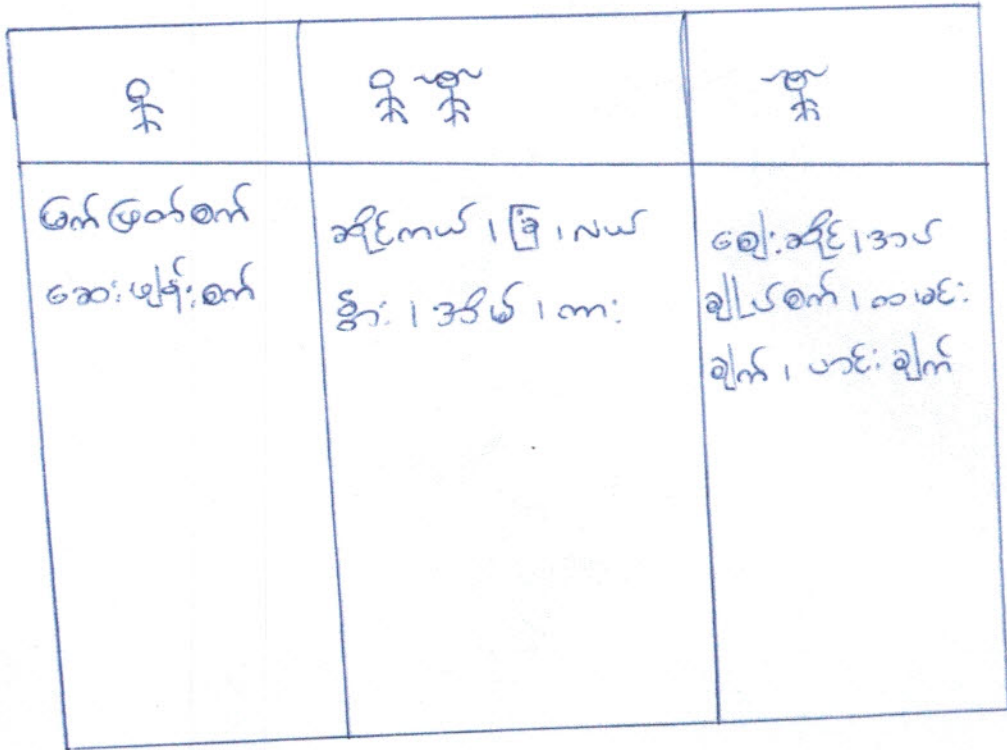 မြက်ဖြတ်စက်
ဆေးဖျန်းစက်
ဆိုင်ကယ်၊ ခြံ၊ လယ်
နွား၊ အိမ်၊ ကား
ဈေးဆိုင်၊ အပ်
ချုပ်စက်၊ ထမင်း
ချက်၊ ဟင်းချက်